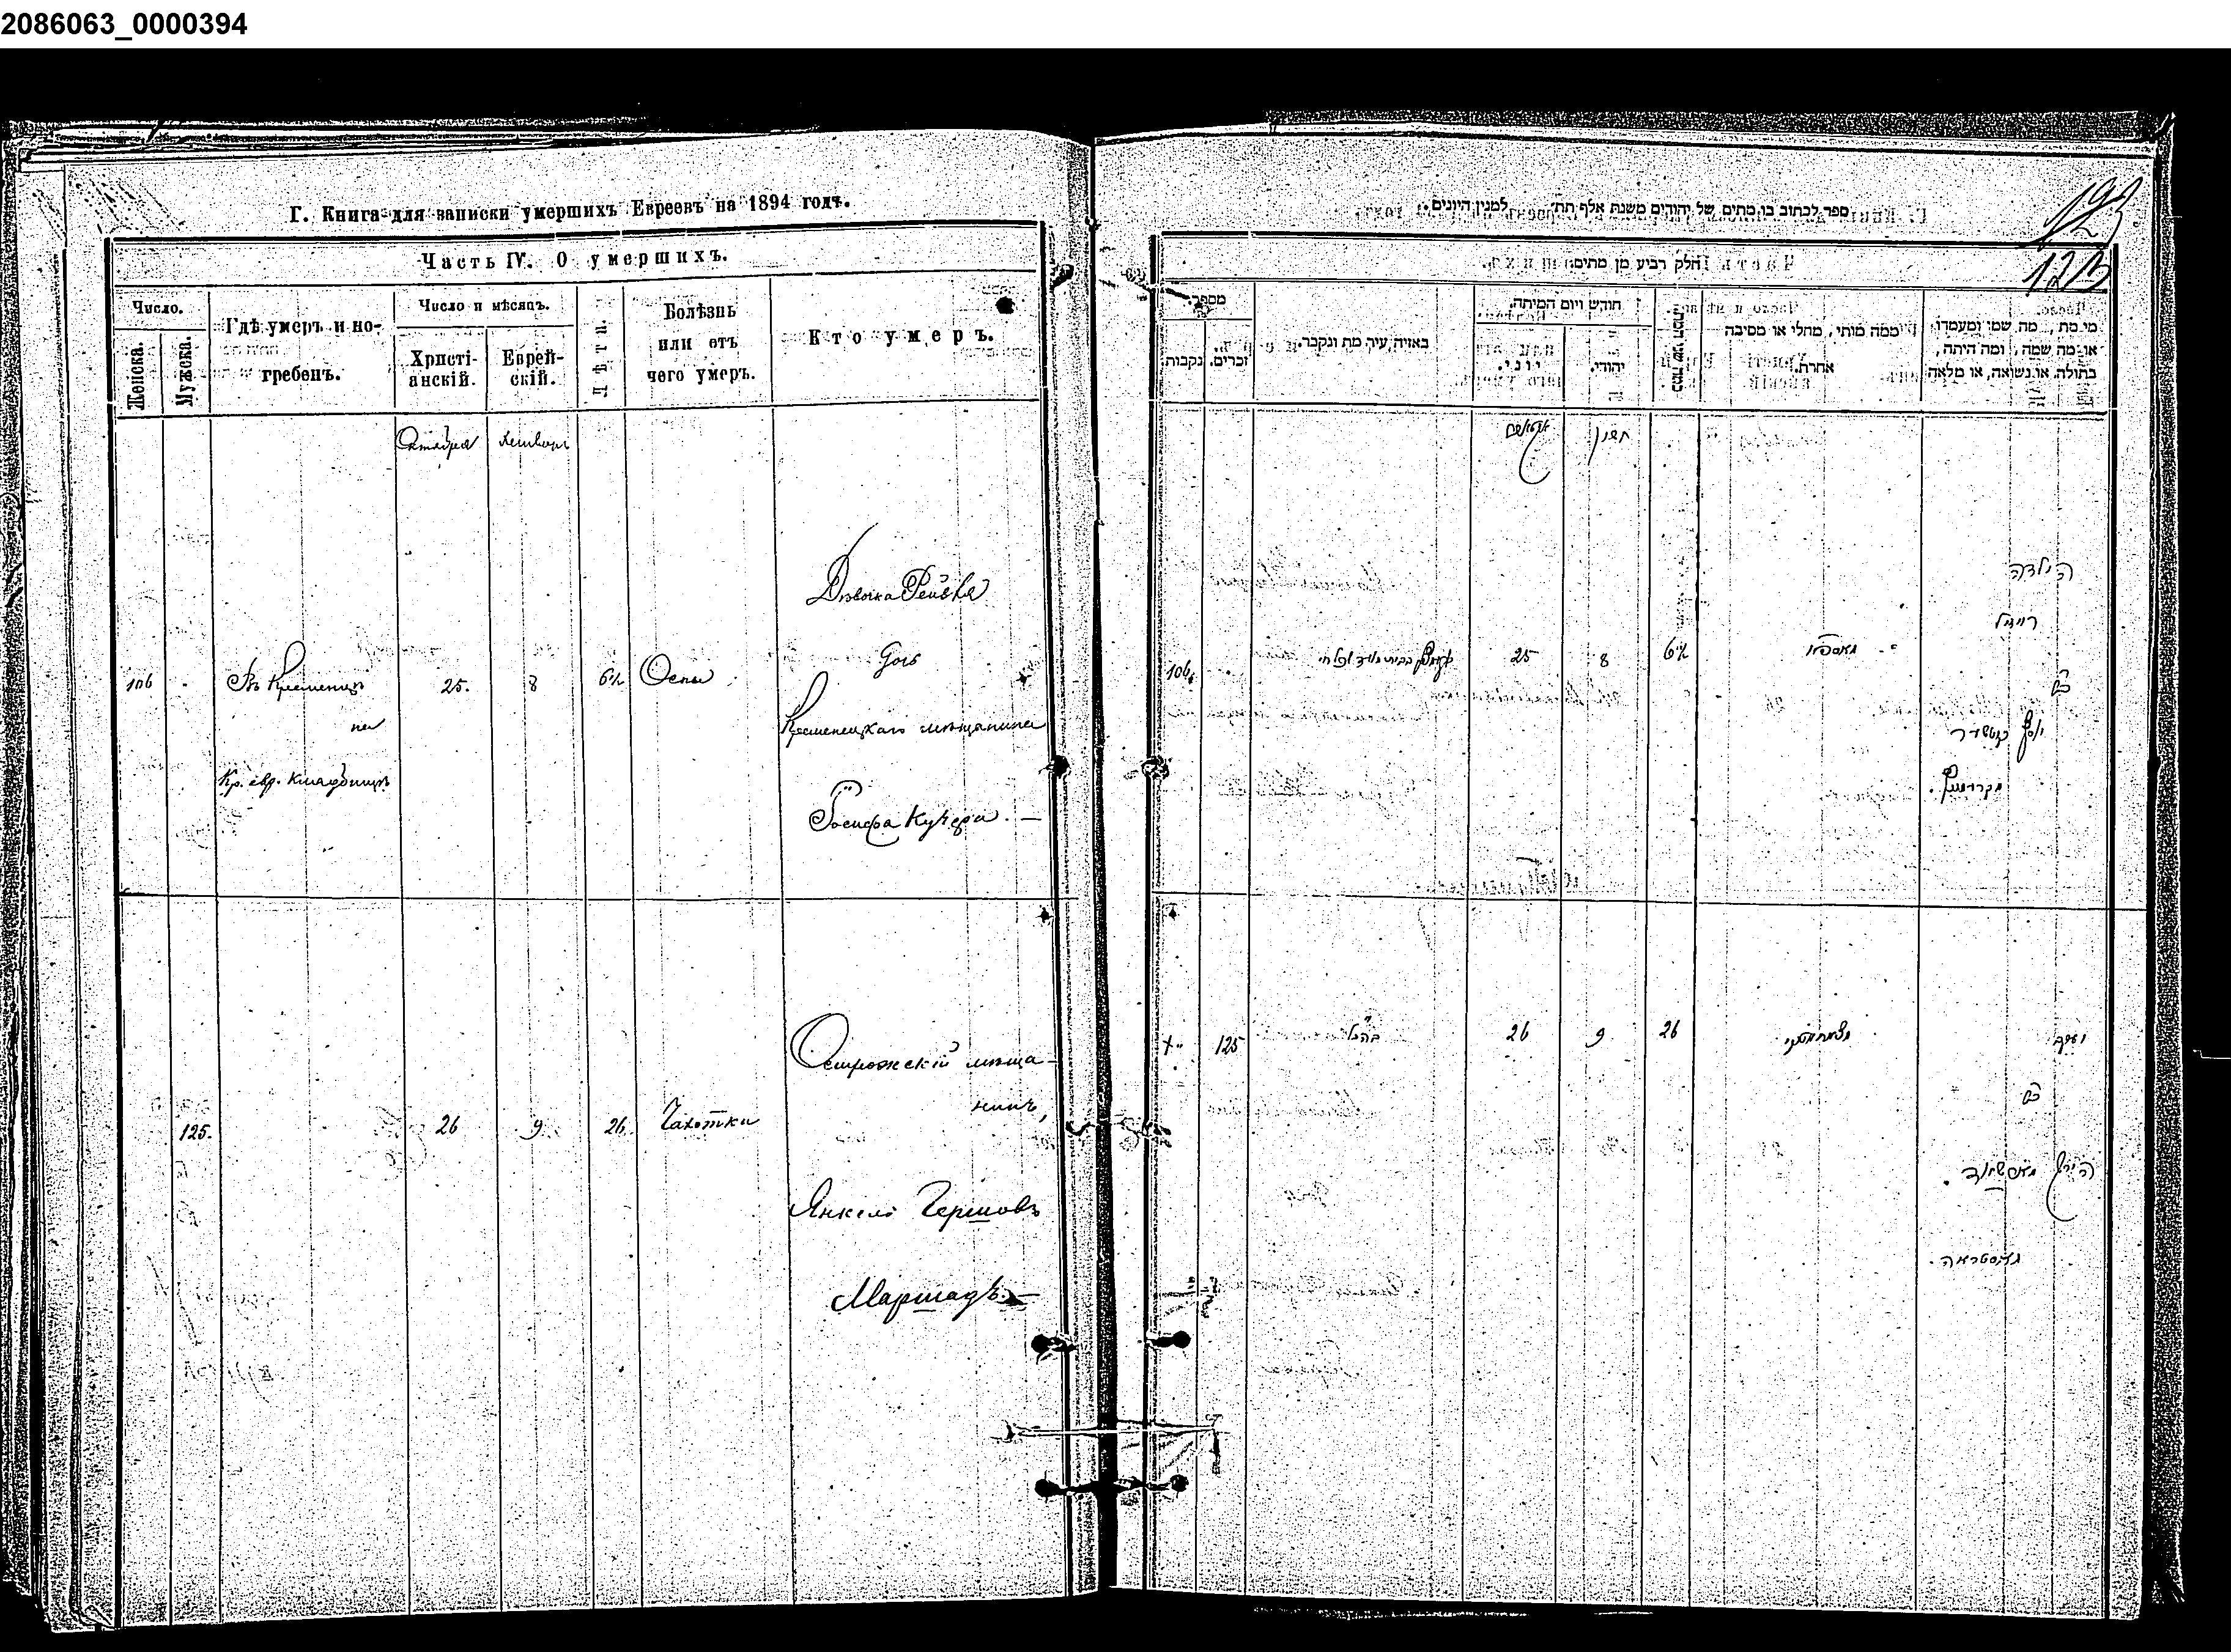 2086063_0000394
Г. Книга для записки умершихъ Евреевъ на 1894 годъ.
Часть IV. О умершихъ.
Число.
Женска.
Мужска.
Гдѣ умеръ и по-
гребенъ.
Число и мѣсяцъ.
Христі-
анскій.
Еврей-
скій.
Лѣта.
Болѣзнь
или отъ
чего умеръ.
Кто умеръ.
Октября
Хешванъ
106
Въ Кременцѣ
на
Кр. евр. кладбищѣ
25.
8
6½
Оспы
Дѣвочка Рейзля
дочь
Кременецкаго мѣщанина
Іосифа Кучера. —
125.
26
9
26
Чахотки
Острожскій мѣща
нинъ,
Янкель Гершовъ
Маршадъ. —
ספר לכתוב בו מתים של יהודים משנת אלף תת׳ למנין היונים.
123
חלק רביע מן מתים
מספר.
נקבות.
זכרים.
באיזה עיר מת ונקבר.
חודש ויום המיתה.
יוני.
יהודי.
ממה מותו, מחלי או מסיבה
אחרת.
מי מת, מה שמו ומעמדו,
או מה שמה, ומה היתה,
בתולה, או נשואה, או מלאה
חשון
הילדה
רייזיל
בת
יוסף קוטשער
מקרימניץ.
106
25
8
6½
125
26
9
26
יענקל
בן
הירש מארשאד.